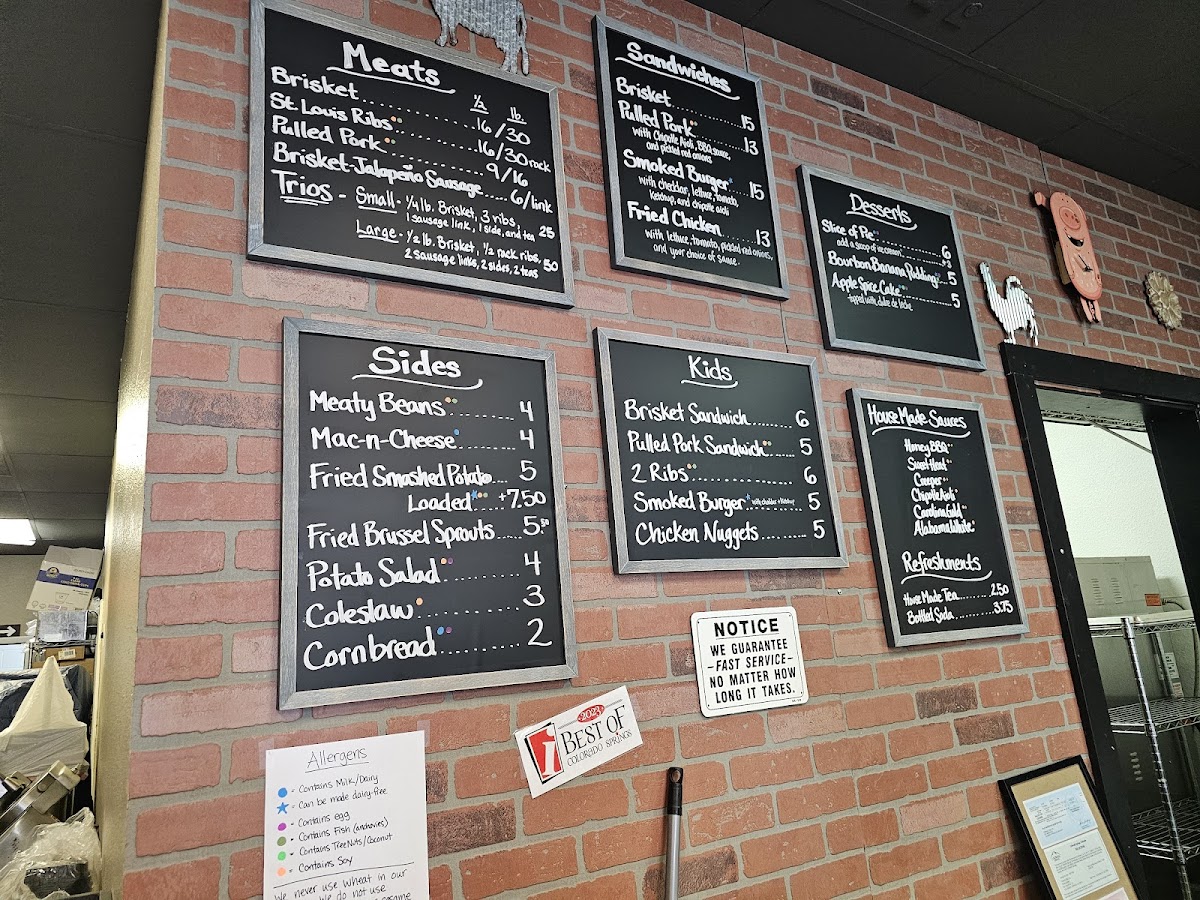 Meats
½ lb.
Brisket 16/30
St. Louis Ribs 16/30 rack
Pulled Pork 9/16
Brisket-Jalapeño Sausage 6/link
Trios - Small - ¼ lb. Brisket, 3 ribs,
1 sausage link, 1 side, and tea 25
Large - ½ lb. Brisket, ½ rack ribs,
2 sausage links, 2 sides, 2 teas 50
Sandwiches
Brisket 15
Pulled Pork 13
with Chipotle Aioli, BBQ sauce,
and pickled red onions
Smoked Burger 15
with cheddar, lettuce, tomato,
ketchup, and chipotle aioli
Fried Chicken 13
with lettuce, tomato, pickled red onions,
and your choice of sauce.
Desserts
Slice of Pie 6
add a scoop of ice cream
Bourbon Banana Pudding 5
Apple Spice Cake 5
topped with dulce de leche
Sides
Meaty Beans 4
Mac-n-Cheese 4
Fried Smashed Potato 5
Loaded +7.50
Fried Brussel Sprouts 5.50
Potato Salad 4
Coleslaw 3
Cornbread 2
Kids
Brisket Sandwich 6
Pulled Pork Sandwich 5
2 Ribs 6
Smoked Burger with cheddar + ketchup 5
Chicken Nuggets 5
House Made Sauces
Honey BBQ
Sweet Heat
Creeper
Chipotle Aioli
Carolina Gold
Alabama White
Refreshments
House Made Tea 2.50
Bottled Soda 3.75
NOTICE
WE GUARANTEE
-FAST SERVICE-
NO MATTER HOW
LONG IT TAKES.
2023
i BEST OF
COLORADO SPRINGS
Allergens
- Contains Milk/Dairy
- Can be made dairy-free
- Contains egg
- Contains Fish (anchovies)
- Contains Tree Nuts/Coconut
- Contains Soy
We never use wheat in our
we do not use